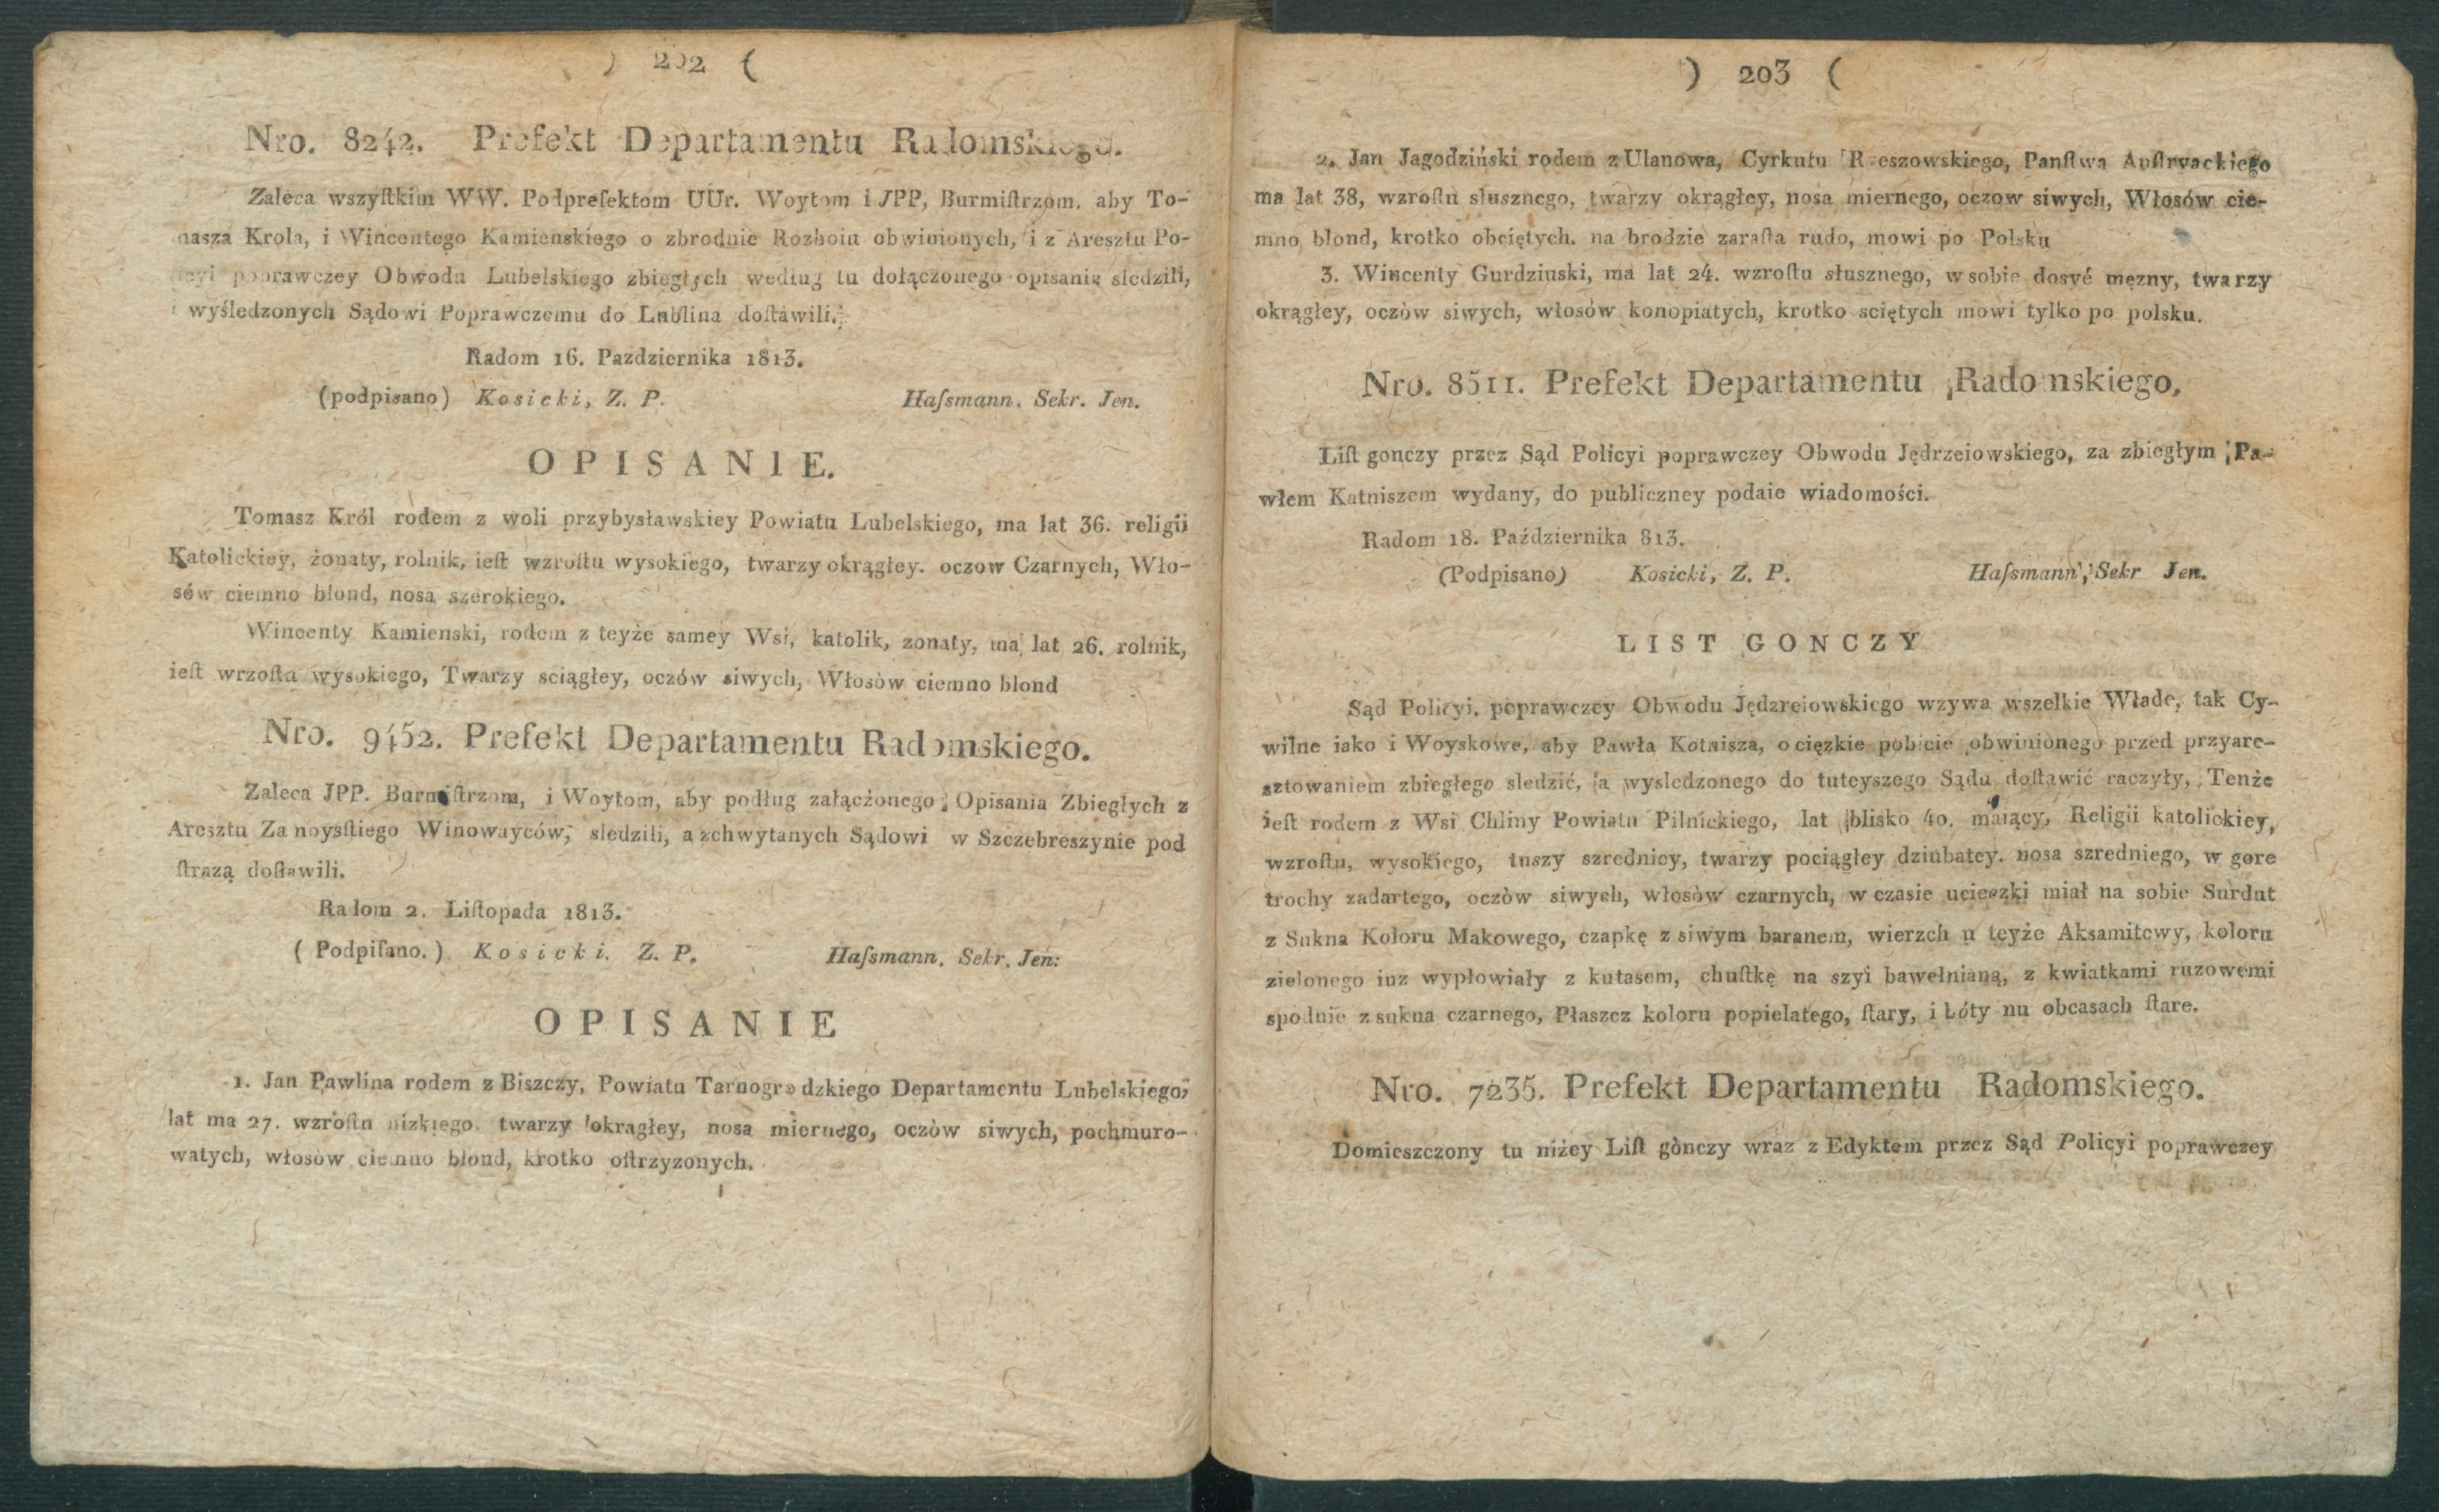 ) 202 (
Nro. 8242. Prefekt Departamentu Radomskiego.
Zaleca wszyſtkim WW. Podprefektom UUr. Woytom i JPP, Burmiſtrzom. aby To-
masza Krola, i Wincentego Kamienskiego o zbrodnie Rozboiu obwinionych, i z Aresztu Po-
licyi poprawczey Obwodu Lubelskiego zbiegłych według tu dołączonego opisania sledzili,
i wyśledzonych Sądowi Poprawczemu do Lublina doſtawili.
Radom 16. Pazdziernika 1813.
(podpisano) Kosicki, Z. P. Haſsmann. Sekr. Jen.
OPISANIE.
Tomasz Król rodem z woli przybysławskiey Powiatu Lubelskiego, ma lat 36. religii
Katolickiey, żonaty, rolnik, ieſt wzroſtu wysokiego, twarzy okrągłey. oczow Czarnych, Wło-
sów ciemno blond, nosa szerokiego.
Wincenty Kamienski, rodem z teyże samey Wsi, katolik, zonaty, ma lat 26. rolnik,
ieſt wrzoſta wysokiego, Twarzy sciągłey, oczów siwych, Włosòw ciemno blond
Nro. 9452. Prefekt Departamentu Radomskiego.
Zaleca JPP. Burmiſtrzom, i Woytom, aby podług załączonego Opisania Zbiegłych z
Aresztu Zanoysſtiego Winowaycòw, sledzili, a zchwytanych Sądowi w Szczebreszynie pod
ſtrazą doſtawili.
Radom 2. Liſtopada 1813.
( Podpiſano.) Kosicki. Z. P. Haſsmann. Sekr. Jen:
OPISANIE
1. Jan Pawlina rodem z Biszczy, Powiatu Tarnogrodzkiego Departamentu Lubelskiego,
lat ma 27. wzroſtu nizkiego. twarzy okragłey, nosa miernego, oczòw siwych, pochmuro-
watych, włosow ciemno blond, krotko oſtrzyzonych.
) 203 (
2. Jan Jagodziński rodem z Ulanowa, Cyrkułu Rzeszowskiego, Panſtwa Auſtryackiego
ma lat 38, wzroſtu slusznego, twarzy okrągłey, nosa miernego, oczow siwych, Włosów cie-
mno blond, krotko obciętych. na brodzie zaraſta rudo, mowi po Polsku
3. Wincenty Gurdziuski, ma lat 24. wzroſtu słusznego, w sobie dosyć męzny, twarzy
okrągłey, oczòw siwych, włosów konopiatych, krotko sciętych mowi tylko po polsku.
Nro. 8511. Prefekt Departamentu Radomskiego.
Liſt gonczy przez Sąd Policyi poprawczey Obwodu Jędrzeiowskiego, za zbiegłym Pa-
włem Katniszem wydany, do publiczney podaie wiadomości.
Radom 18. Października 813.
(Podpisano) Kosicki, Z. P. Haſsmann, Sekr Jen.
LIST GONCZY
Sąd Policyi. poprawczey Obwodu Jędzreiowskiego wzywa wszelkie Wlade, tak Cy-
wilne iako i Woyskowe, aby Pawła Kotnisza, o ciężkie pobicie obwinionego przed przyare-
sztowaniem zbiegłego sledzić, a wysledzonego do tuteyszego Sądu doſtawić raczyły, Tenże
ieſt rodem z Wsi Chliny Powiatu Pilnickiego, lat blisko 40. maiący, Religii katolickiey,
wzroſtu, wysokiego, tuszy szredniey, twarzy pociągłey dziubatey. nosa szredniego, w gore
trochy zadartego, oczòw siwych, włosòw czarnych, w czasie ucieczki miał na sobie Surdut
z Sukna Koloru Makowego, czapkę z siwym baranem, wierzch u teyże Aksamitowy, koloru
zielonego iuz wypłowiały z kutasem, chuſtkę na szyi bawełnianą, z kwiatkami ruzowemi
spodnie z sukna czarnego, Płaszcz koloru popielatego, ſtary, i bóty nu obcasach ſtare.
Nro. 7235. Prefekt Departamentu Radomskiego.
Domieszczony tu niżey Liſt gònczy wraz z Edyktem przez Sąd Policyi poprawczey